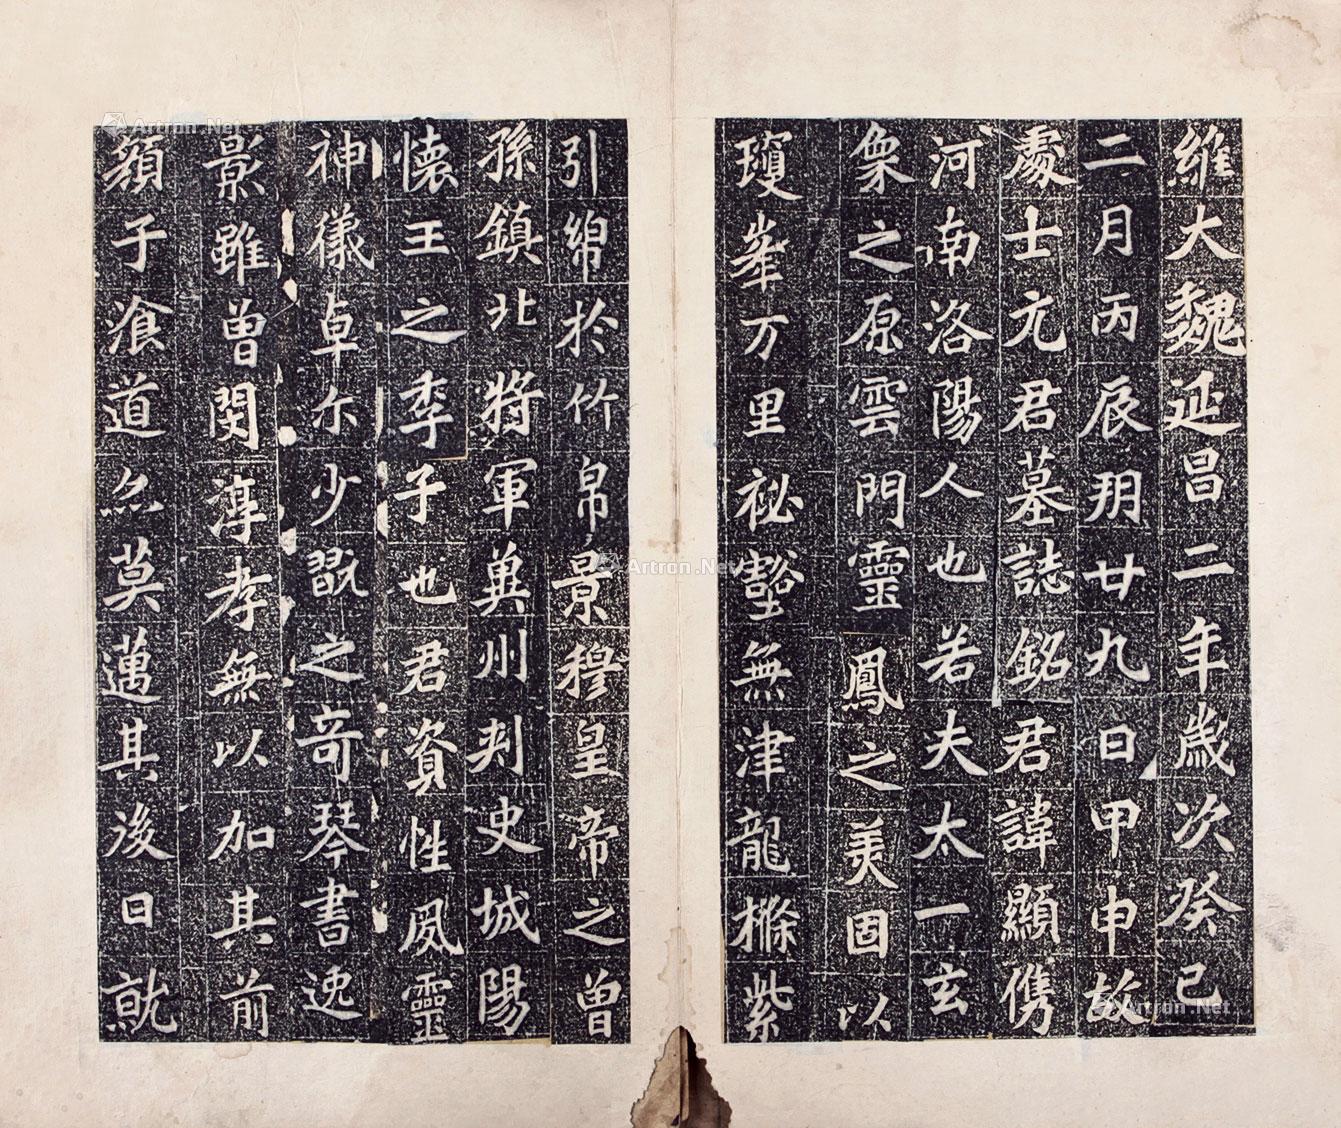 維大魏延昌二年歲次癸巳
二月丙辰玥廿九日甲申故
處士元君墓誌銘君諱顯儁
河南洛陽人也若夫太一玄
象之原雲門靈鳳之美固以
瓊峯万里祕壑無津龍樤紫
引綿於竹帛景穆皇帝之曾
孫鎮北將軍冀州刺史城陽
懷王之季子也君資性夙靈
神儀卓尒少翫之奇琴書逸
影雖曾閔淳孝無以加其前
顏子湌道亦莫邁其後日就
Artron.Net
Artron.Net
Artron.Net